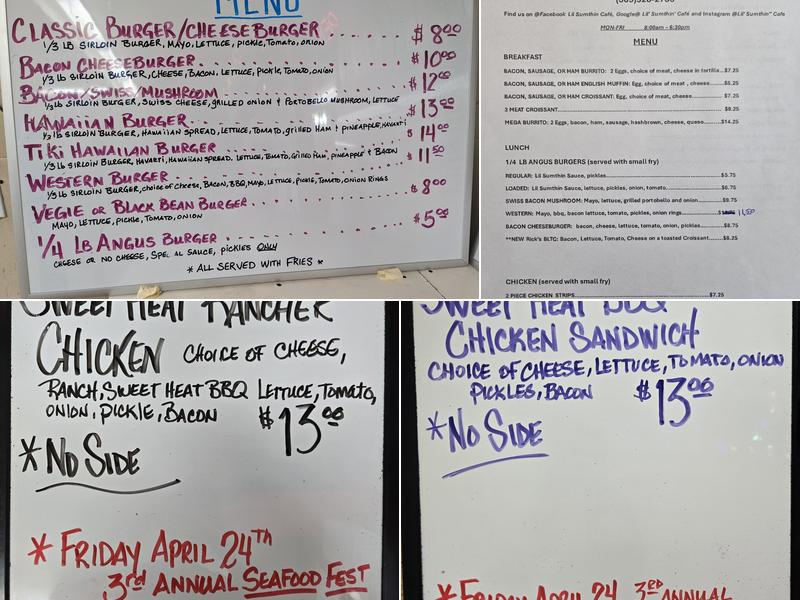 MENU
CLASSIC BURGER/CHEESEBURGER . . . . . $8.00
1/3 LB SIRLOIN BURGER, MAYO, LETTUCE, PICKLE, TOMATO, ONION
BACON CHEESEBURGER . . . . . $10.00
1/3 lb SIRLOIN BURGER, CHEESE, BACON, LETTUCE, PICKLE, TOMATO, ONION
BACON/SWISS/MUSHROOM . . . . . $12.00
1/3 lb SIRLOIN BURGER, SWISS CHEESE, GRILLED ONION & PORTOBELLO MUSHROOM, LETTUCE
HAWAIIAN BURGER . . . . . $13.00
1/3 lb SIRLOIN BURGER, HAWAIIAN SPREAD, LETTUCE, TOMATO, GRILLED HAM & PINEAPPLE, HAVARTI
TIKI HAWAIIAN BURGER . . . . . $14.00
1/3 lb SIRLOIN BURGER, HAVARTI, HAWAIIAN SPREAD, LETTUCE, TOMATO, GRILLED HAM, PINEAPPLE & BACON
WESTERN BURGER . . . . . $11.50
1/3 lb SIRLOIN BURGER, CHOICE OF CHEESE, BACON, BBQ, MAYO, LETTUCE, PICKLE, TOMATO, ONION RINGS
VEGIE OR BLACK BEAN BURGER . . . . . $8.00
MAYO, LETTUCE, PICKLE, TOMATO, ONION
1/4 LB ANGUS BURGER . . . . . $5.00
CHEESE OR NO CHEESE, SPECIAL SAUCE, PICKLES ONLY
* ALL SERVED WITH FRIES *
Find us on @Facebook Lil Sumthin Café, Google@ Lil' Sumthin' Café and Instagram @Lil' Sumthin" Cafe
MON-FRI 8:00am – 6:30pm
MENU
BREAKFAST
BACON, SAUSAGE, OR HAM BURRITO: 2 Eggs, choice of meat, cheese in tortilla...$7.25
BACON, SAUSAGE, OR HAM ENGLISH MUFFIN: Egg, choice of meat , cheese.....$5.25
BACON, SAUSAGE, OR HAM CROISSANT: Egg, choice of meat, cheese.....$7.25
3 MEAT CROISSANT.....$9.25
MEGA BURRITO: 2 Eggs, bacon, ham, sausage, hashbrown, cheese, queso.....$14.25
LUNCH
1/4 LB ANGUS BURGERS (served with small fry)
REGULAR: Lil Sumthin Sauce, pickles.....$5.75
LOADED: Lil Sumthin Sauce, lettuce, pickles, onion, tomato.....$6.75
SWISS BACON MUSHROOM: Mayo, lettuce, grilled portobello and onion.....$9.75
WESTERN: Mayo, bbq, bacon lettuce, tomato, pickles, onion rings.....11,50
BACON CHEESEBURGER: bacon, cheese, lettuce, tomato, onion, pickles.....$8.75
**NEW Rick's BLTC: Bacon, Lettuce, Tomato, Cheese on a toasted Croissant.....$8.25
CHICKEN (served with small fry)
2 PIECE CHICKEN STRIPS.....$7.25
SWEET HEAT RANCHER
CHICKEN CHOICE OF CHEESE,
RANCH, SWEET HEAT BBQ LETTUCE, TOMATO,
ONION, PICKLE, BACON $13.00
* NO SIDE
* FRIDAY APRIL 24TH
3rd ANNUAL SEAFOOD FEST
SWEET HEAT BBQ
CHICKEN SANDWICH
CHOICE OF CHEESE, LETTUCE, TOMATO, ONION
PICKLES, BACON $13.00
* NO SIDE
* FRIDAY APRIL 24 3RD ANNUAL